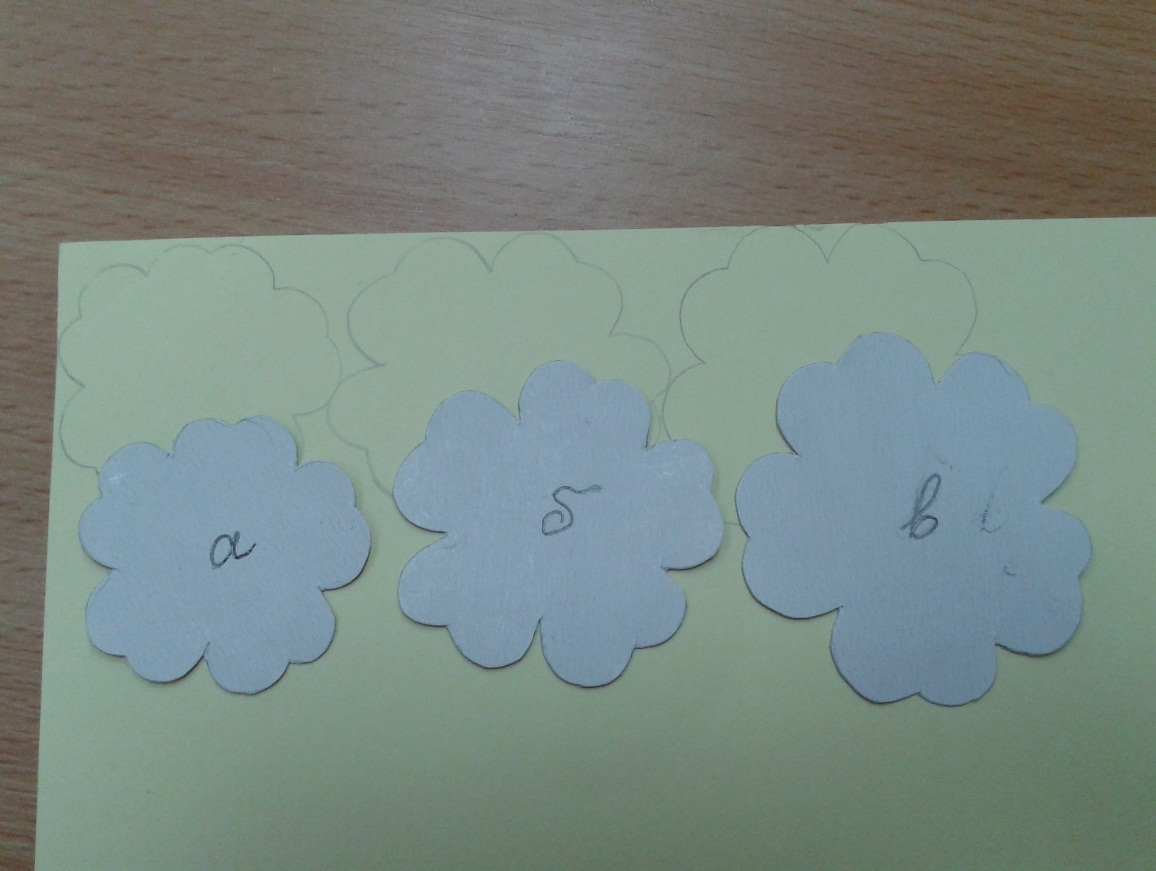 а
б
в